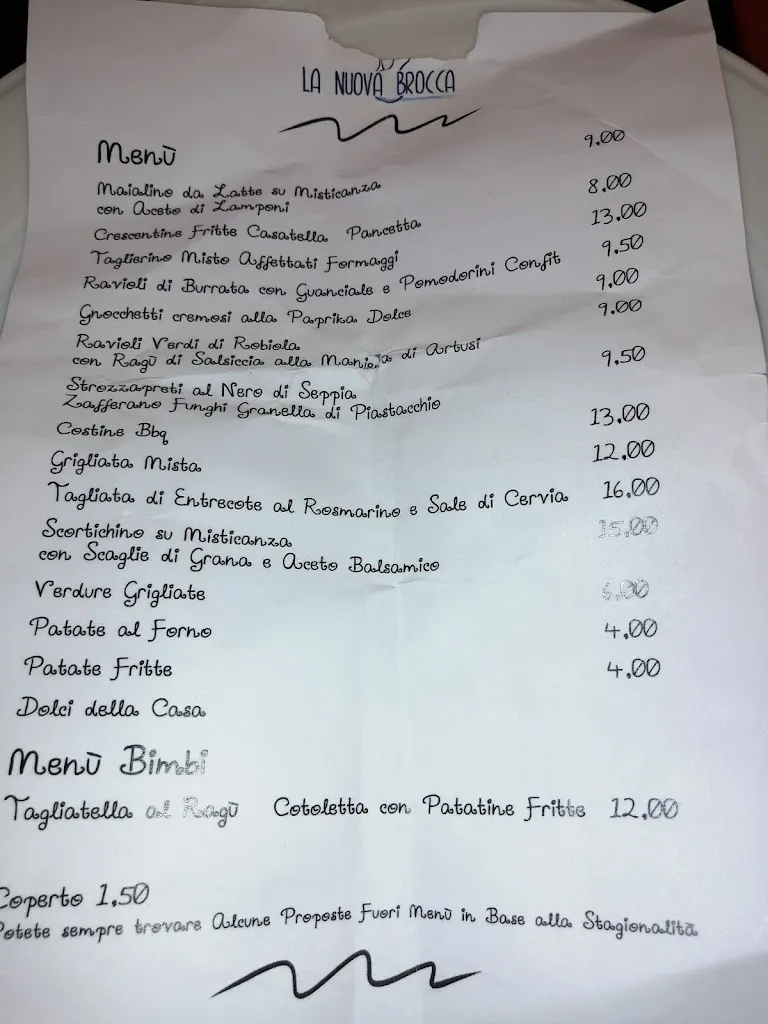 LA NUOVA BROCCA
Menù
Maialino da Latte su Misticanza 9.00
con Aceto di Lamponi
Crescentine Fritte Casatella Pancetta 8.00
Taglierino Misto Affettati Formaggi 13.00
Ravioli di Burrata con Guanciale e Pomodorini Confit 9.50
Gnocchetti cremosi alla Paprika Dolce 9.00
Ravioli Verdi di Robiola 9.00
con Ragù di Salsiccia alla di Artusi
Strozzapreti al Nero di Seppia 9.50
Zafferano Funghi Granella di Piastacchio
Costine Bbq 13.00
Grigliata Mista 12.00
Tagliata di Entrecote al Rosmarino e Sale di Cervia 16.00
Scortichino su Misticanza 15.00
con Scaglie di Grana e Aceto Balsamico
Verdure Grigliate 6.00
Patate al Forno 4.00
Patate Fritte 4.00
Dolci della Casa
Menù Bimbi
Tagliatella al Ragù Cotoletta con Patatine Fritte 12.00
Coperto 1.50
Potete sempre trovare Alcune Proposte Fuori Menù in Base alla Stagionalità